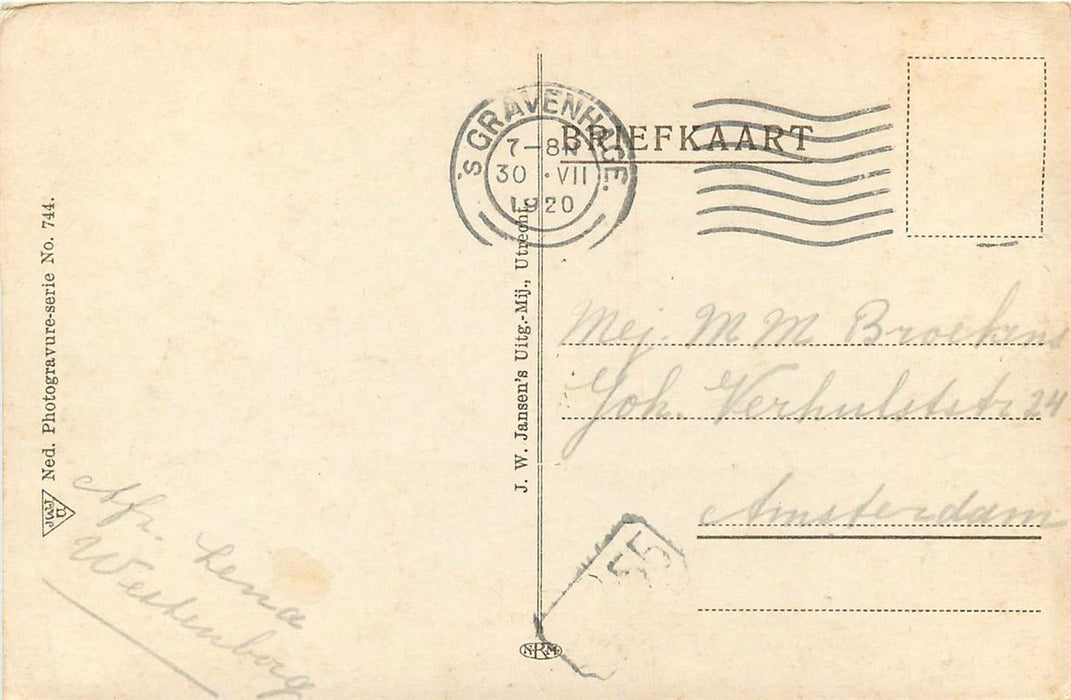 Ned. Photogravure-serie No. 744.
JWJ
U
Afz. Lena
Westenborg
'S GRAVENHAGE.
7-8N
30 . VII
1920
J. W. Jansen's Uitg.-Mij., Utrecht.
NRM
BRIEFKAART
Mej. M. M. Broekens
Joh. Verhulststr 24
Amsterdam
55